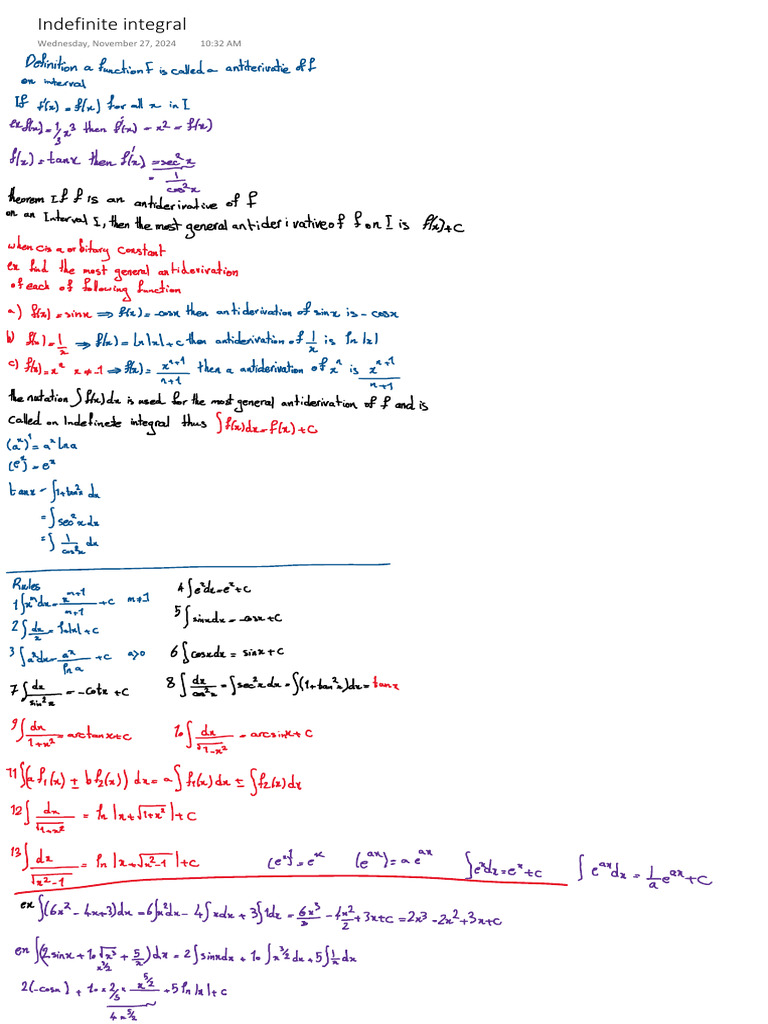 Indefinite integral
Wednesday, November 27, 2024 10:32 AM
Definition a function F is called a antiterivatie of f
on interval
If f'(x) = f(x) for all x in I
ex f(x) = 1/3 x³ then f'(x) = x² = f(x)
f(x) = tanx then f'(x) = sec²x
= 1/cos²x
theorem If f is an antiderivative of f
on an Interval I, then the most general antiderivative of f on I is f(x)+c
when c is a orbitary constant
ex find the most general antiderivation
of each of following function
a) f(x) = sinx ⇒ f(x) = -cosx then antiderivation of sinx is -cosx
b) f(x) = 1/x ⇒ f(x) = ln|x|+c then antiderivation of 1/x is ln|x|
c) f(x) = xⁿ x ≠ -1 ⇒ f(x) = xⁿ⁺¹/n+1 then a antiderivation of xⁿ is xⁿ⁺¹/n+1
the notation ∫f(x)dx is used for the most general antiderivation of f and is
called an Indefinete integral thus ∫f(x)dx = f(x)+c
(aˣ)' = aˣ ln a
(eˣ)' = eˣ
tanx = ∫1+tan²x dx
= ∫sec²x dx
= ∫ 1/cos²x dx
Rules
1 ∫xⁿdx = xⁿ⁺¹/n+1 + c n≠1
4 ∫eˣdx = eˣ+c
2 ∫dx/x = ln|x|+c
5 ∫sinxdx = -cosx+c
3 ∫aˣdx = aˣ/ln a + c a>0
6 ∫cosxdx = sinx+c
7 ∫dx/sin²x = -cotx+c
8 ∫dx/cos²x = ∫sec²x dx = ∫(1+tan²x)dx = tanx
9 ∫dx/1+x² = arctanx+c
10 ∫dx/√1-x² = arcsinx+c
11 ∫(a f₁(x) ± b f₂(x)) dx = a∫f₁(x)dx ± ∫f₂(x)dx
12 ∫dx/√1+x² = ln|x+√1+x²|+c
13 ∫dx/√x²-1 = ln|x+√x²-1|+c (eˣ)' = eˣ (eᵃˣ)' = a eᵃˣ ∫eˣdx = eˣ+c ∫eᵃˣdx = 1/a eᵃˣ+c
ex ∫(6x²-4x+3)dx = 6∫x²dx - 4∫xdx + 3∫1dx = 6x³/3 - 4x²/2 + 3x+c = 2x³-2x²+3x+c
ex ∫(2sinx + 10√x³ + 5/x)dx = 2∫sinxdx + 10∫x^3/2 dx + 5∫1/x dx
x^3/2
2(-cosx) + 10 × 2/5 × x^5/2 + 5 ln|x|+c
4x^5/2